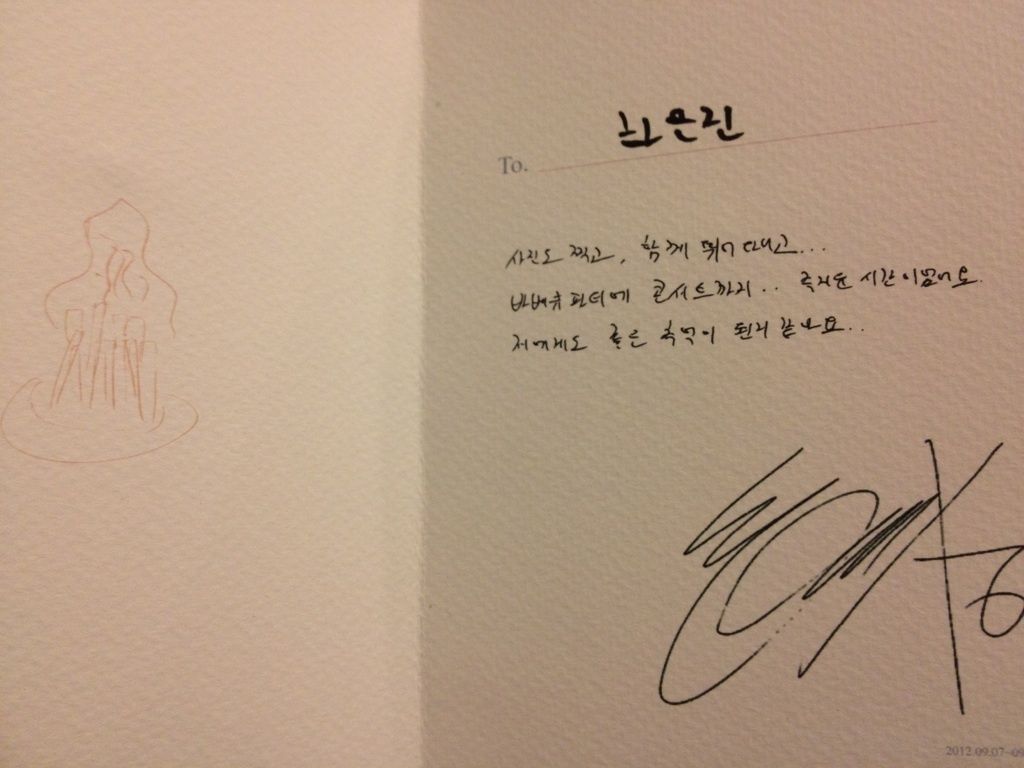 최은진
To.
사진도 찍고, 함께 뛰기 다니고...
바베큐 파티에 콘서트까지.. 즐거운 시간이었어요.
저에게도 좋은 추억이 된거 같아요..
2012.09.07-09